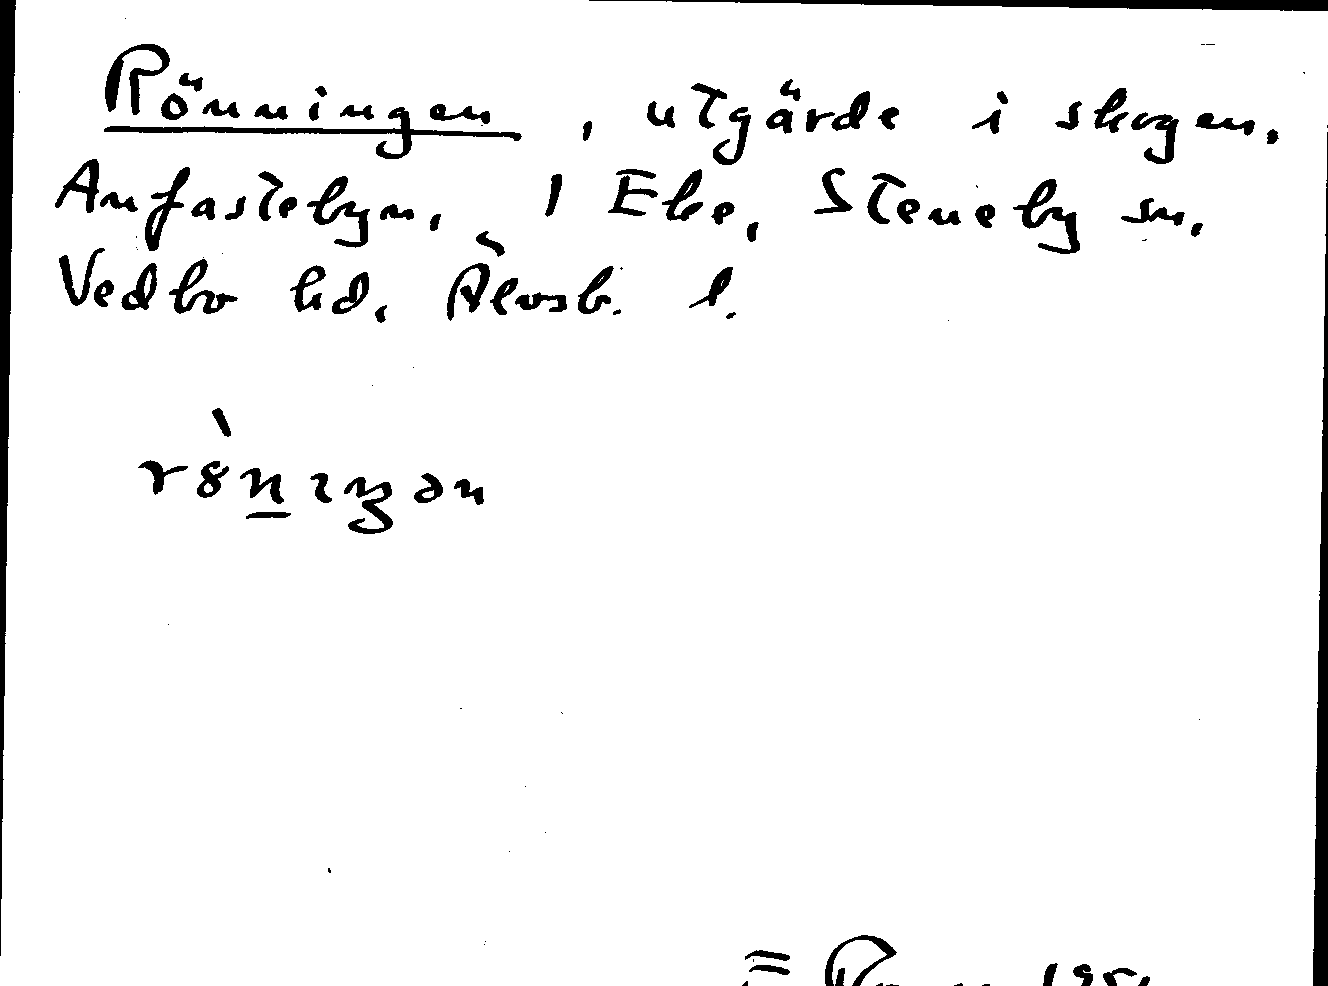 Rönningen, utgärde i skogen.
Anfastebyn, 1 Eke, Steneby sn.
Vedbo hd. Älvsb. l.
rö̀nıŋən